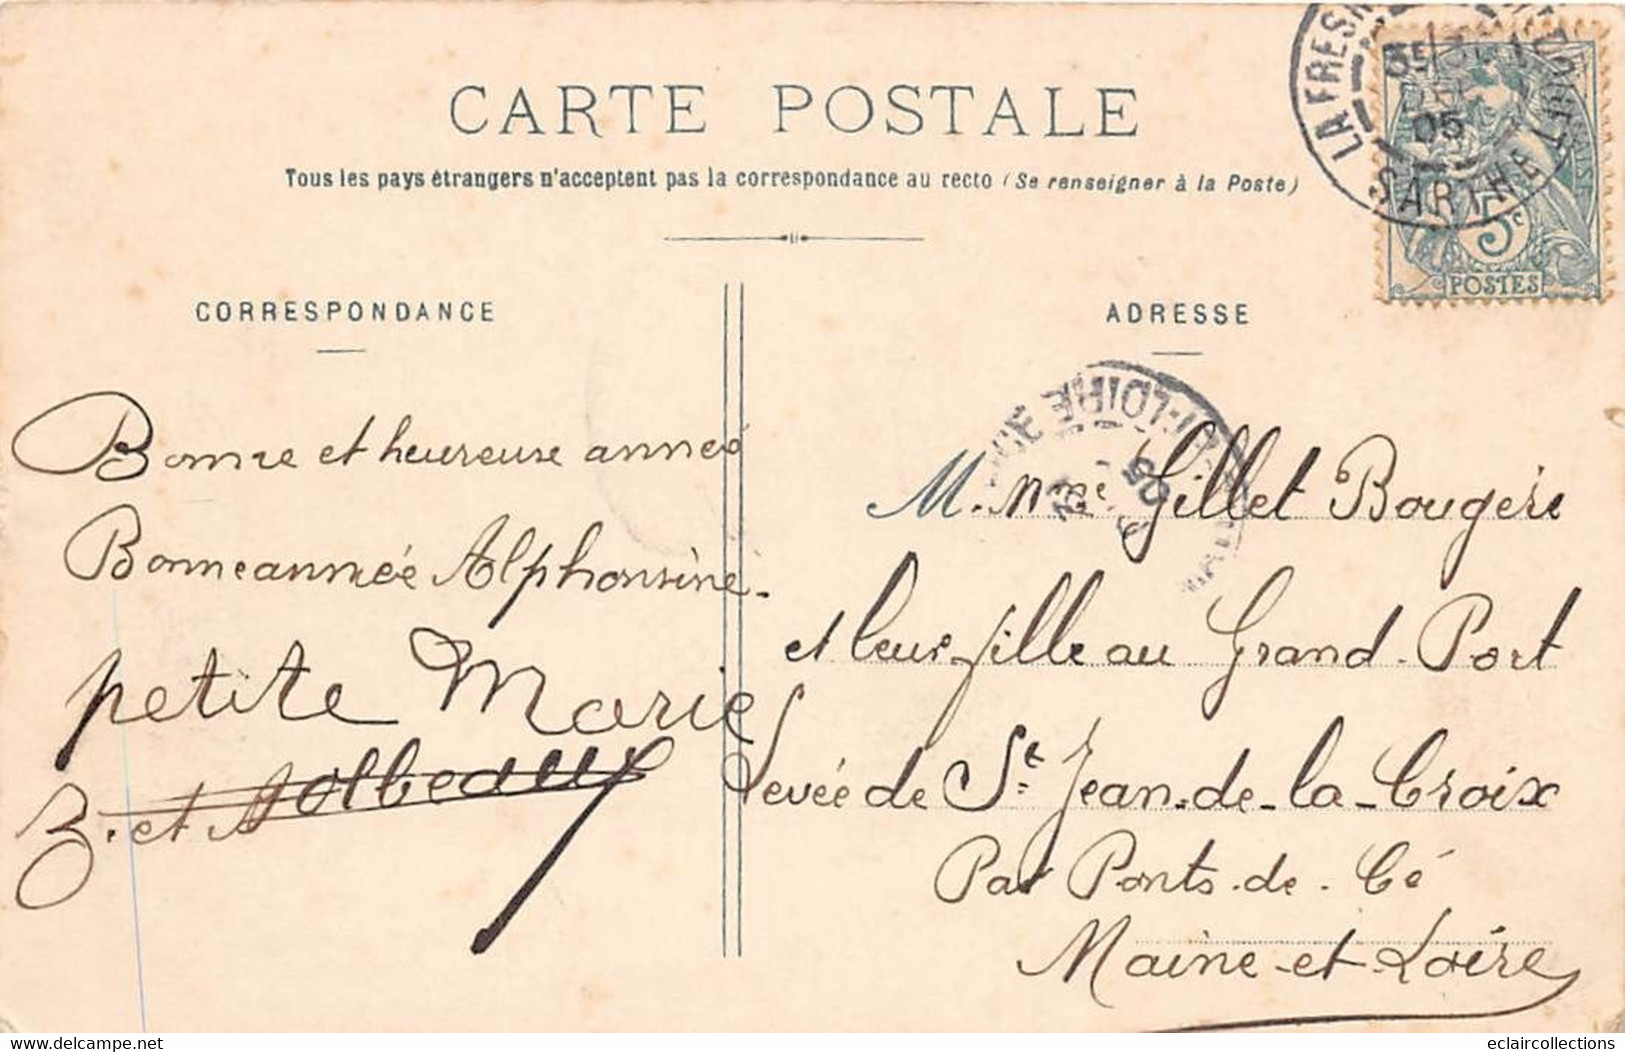 CARTE POSTALE
Tous les pays étrangers n'acceptent pas la correspondance au recto (Se renseigner à la Poste)
CORRESPONDANCE
Bonne et heureuse année
Bonne année Alphonsine.
petite Marie
et
ADRESSE
M. Mme Gillet Bougère
et leur fille au Grand-Port
Levée de St Jean-de-la-Croix
Par Ponts-de-Cé
Maine-et-Loire
LA FRESN
SARTHE
05
5c
POSTES
LOIRE
05
delcampe.net
eclaircollections